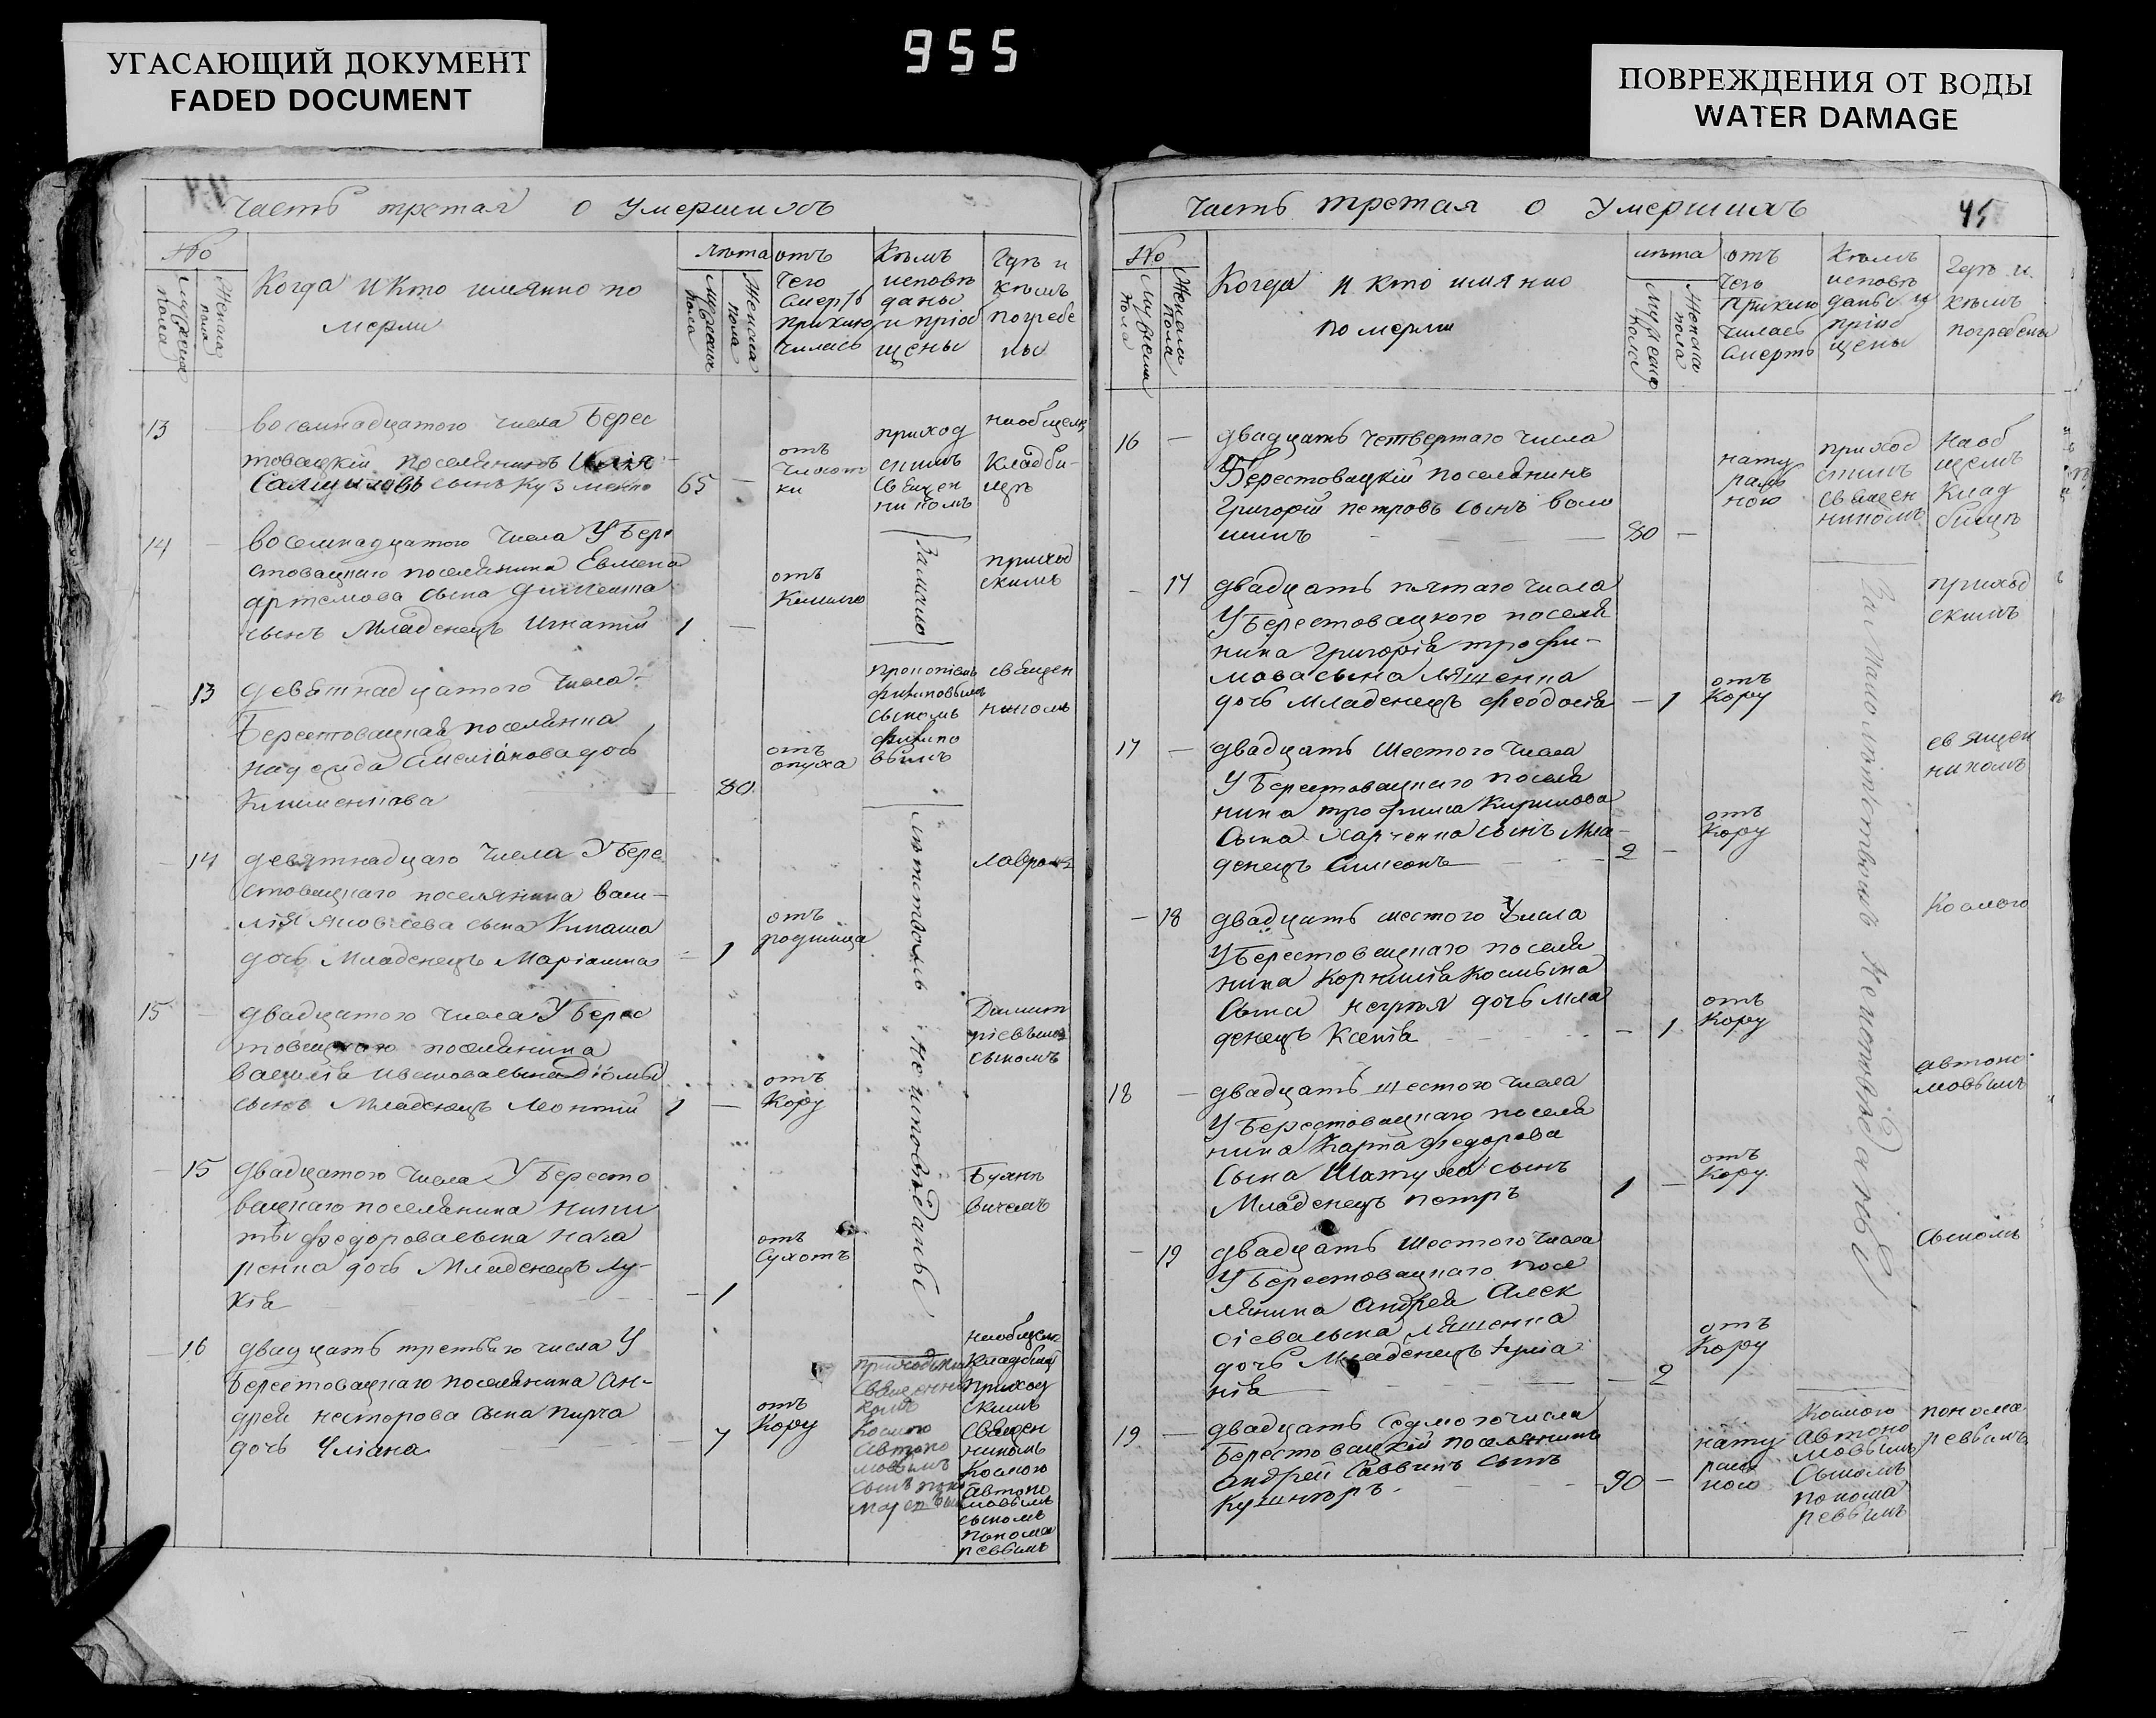 УГАСАЮЩИЙ ДОКУМЕНТ
FADED DOCUMENT
955
ПОВРЕЖДЕНИЯ ОТ ВОДЫ
WATER DAMAGE
Часть третая о Умершихъ
No
Мужеска пола
Женска пола
Когда и кто имянно по
мерли
лѣта
Мужеска пола
Женска пола
отъ
чего
смерть
приклю
чилась
Кѣмъ
исповѣ
даны
и пріоб
щены
Гдѣ и
кѣмъ
погребе
ны
13 — восемнадцатого числа Берес
товацкій поселянинъ
сынъ Кузменко 65 —
отъ
чахот
ки
приход
скимъ
священ
никомъ
на общемъ
кладби-
щѣ
14 — восемнадцатого числа У Бере
стовацкаго поселянина Евмена
артемова сына
сынъ Младенецъ Игнатий 1 —
отъ
Кашлю
Замало
приход
скимъ
— 13 девятнадцатого числа
Берестовацкая поселянка
надежда Емелiанова дочь
Клименкова — 80
отъ
опуха
сыномъ
священ
никомъ
— 14 девятнадцаго числа У Бере
стовацкаго поселянина васи-
лія сына Кипаша
дочь Младенецъ Маріанна — 1
отъ
родимца
лѣтствомъ Не исповѣданы
15 — двадцатого числа У Берес
товацкаго поселянина
василія сына
сынъ Младенецъ Леонтій 1 —
отъ
Кору
Димит
ріевымъ
сыномъ
— 15 двадцатого числа У Бересто
вацкаго поселянина Ники
ты федорова сына Нага
ренка дочь Младенецъ Лу-
кія — 1
отъ
Сухотъ
— 16 двадцать третьего числа У
Берестовацкаго поселянина Ан-
дрея несторова сына
дочь Уліана — 7
отъ
Кору
приходским
Священни
комъ
Космою
Автоно
мовымъ
на общемъ
Кладбищѣ
приход
скимъ
Священ
никомъ
Космою
Автоно
мовымъ
сыномъ
понома
ревымъ
Часть третая о Умершихъ
45
No
Мужеска пола
Женска пола
Когда и кто имянно
по мерли
лѣта
Мужеска пола
Женска пола
отъ
чего
приклю
чилась
смерть
Кѣмъ
исповѣ
даны и
пріоб
щены
Гдѣ и
кѣмъ
погребены
16 — двадцать четвертаго числа
Берестовацкій поселянинъ
Григорій петровъ сынъ воло
шинъ — 80 —
нату
раль
ною
приход
скимъ
священ
никомъ
На об
щемъ
Клад
бищѣ
— 17 двадцать пятаго числа
У Берестовацкого поселя
нина Григорія трофи-
мова сына Ляшенка
дочь младенецъ феодосія — 1
отъ
Кору
приход
скимъ
За Малолѣтствомъ Не исповѣданы
17 — двадцать шестого числа
У Берестовацкаго поселя
нина трофима Кирилова
сына Харченка сынъ Мла-
денецъ Симеонъ — 2 —
отъ
Кору
священ
никомъ
— 18 двадцать шестого числа
У Берестовацкаго поселя
нина Корнилія Космына
Сына дочь мла
денецъ Ксенія — 1
отъ
Кору
Космою
18 — двадцать шестого числа
У Берестовацкаго поселя
нина Карпа федорова
сына Шатула сынъ
Младенецъ петръ 1 —
отъ
Кору
автоно
мовымъ
— 19 двадцать шестого числа
У Берестовацкаго посе
лянина Андрея Алек
сіева сына Ляшенка
дочь Младенецъ Iуліа
нія — 2
отъ
Кору
сыномъ
19 — двадцать седмого числа
Берестовацкій поселянинъ
андрей Саввинъ сынъ
Кушнѣръ — 90 —
нату
раль
ною
Космою
автоно
мовымъ
Сыномъ
понома
ревымъ
понома
ревымъ